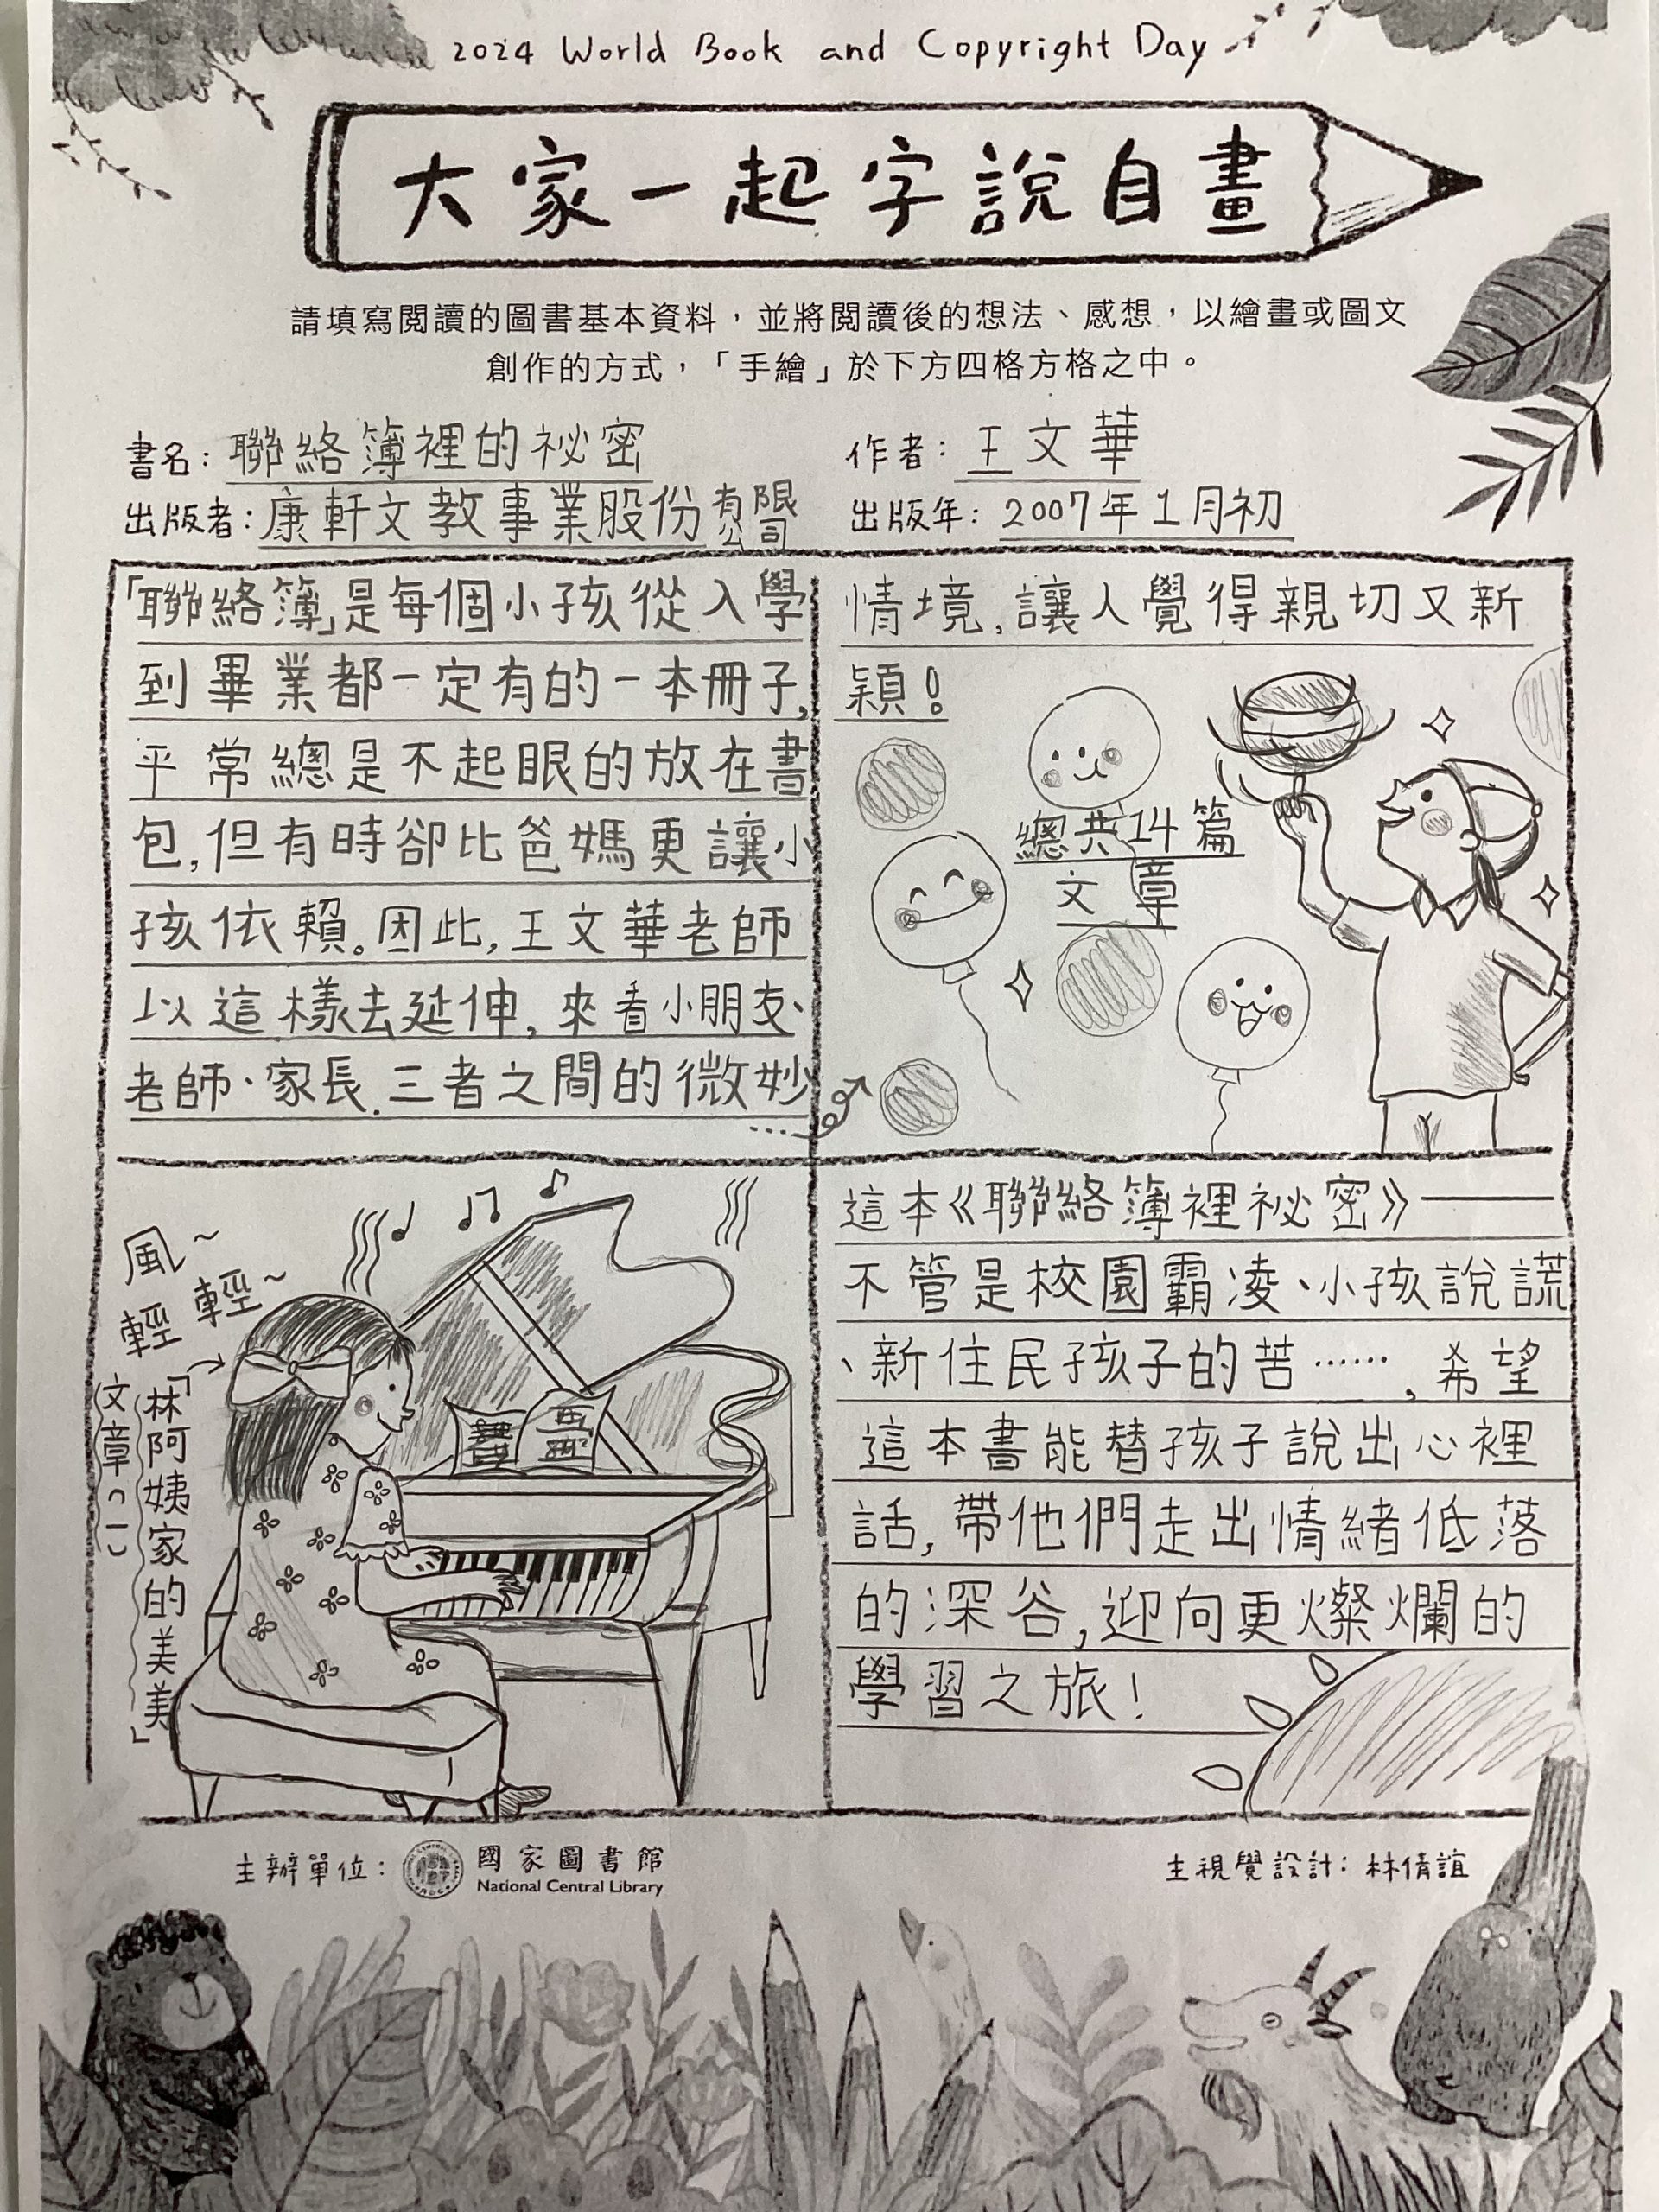 2024 World Book and Copyright Day
大家一起字說自畫
請填寫閱讀的圖書基本資料，並將閱讀後的想法、感想，以繪畫或圖文
創作的方式，「手繪」於下方四格方格之中。
書名：聯絡簿裡的祕密
作者：王文華
出版者：康軒文教事業股份有限公司
出版年：2007年1月初
「聯絡簿」是每個小孩從入學
到畢業都一定有的一本冊子，
平常總是不起眼的放在書
包，但有時卻比爸媽更讓小
孩依賴。因此，王文華老師
以這樣去延伸，來看小朋友、
老師、家長，三者之間的微妙
情境，讓人覺得親切又新
穎！
總共14篇
文章
風～
輕輕～
「林阿姨家的美美」
文章(一)
這本《聯絡簿裡祕密》——
不管是校園霸凌、小孩說謊
、新住民孩子的苦……，希望
這本書能替孩子說出心裡
話，帶他們走出情緒低落
的深谷，迎向更燦爛的
學習之旅！
主辦單位：
國家圖書館
National Central Library
主視覺設計：林倩誼